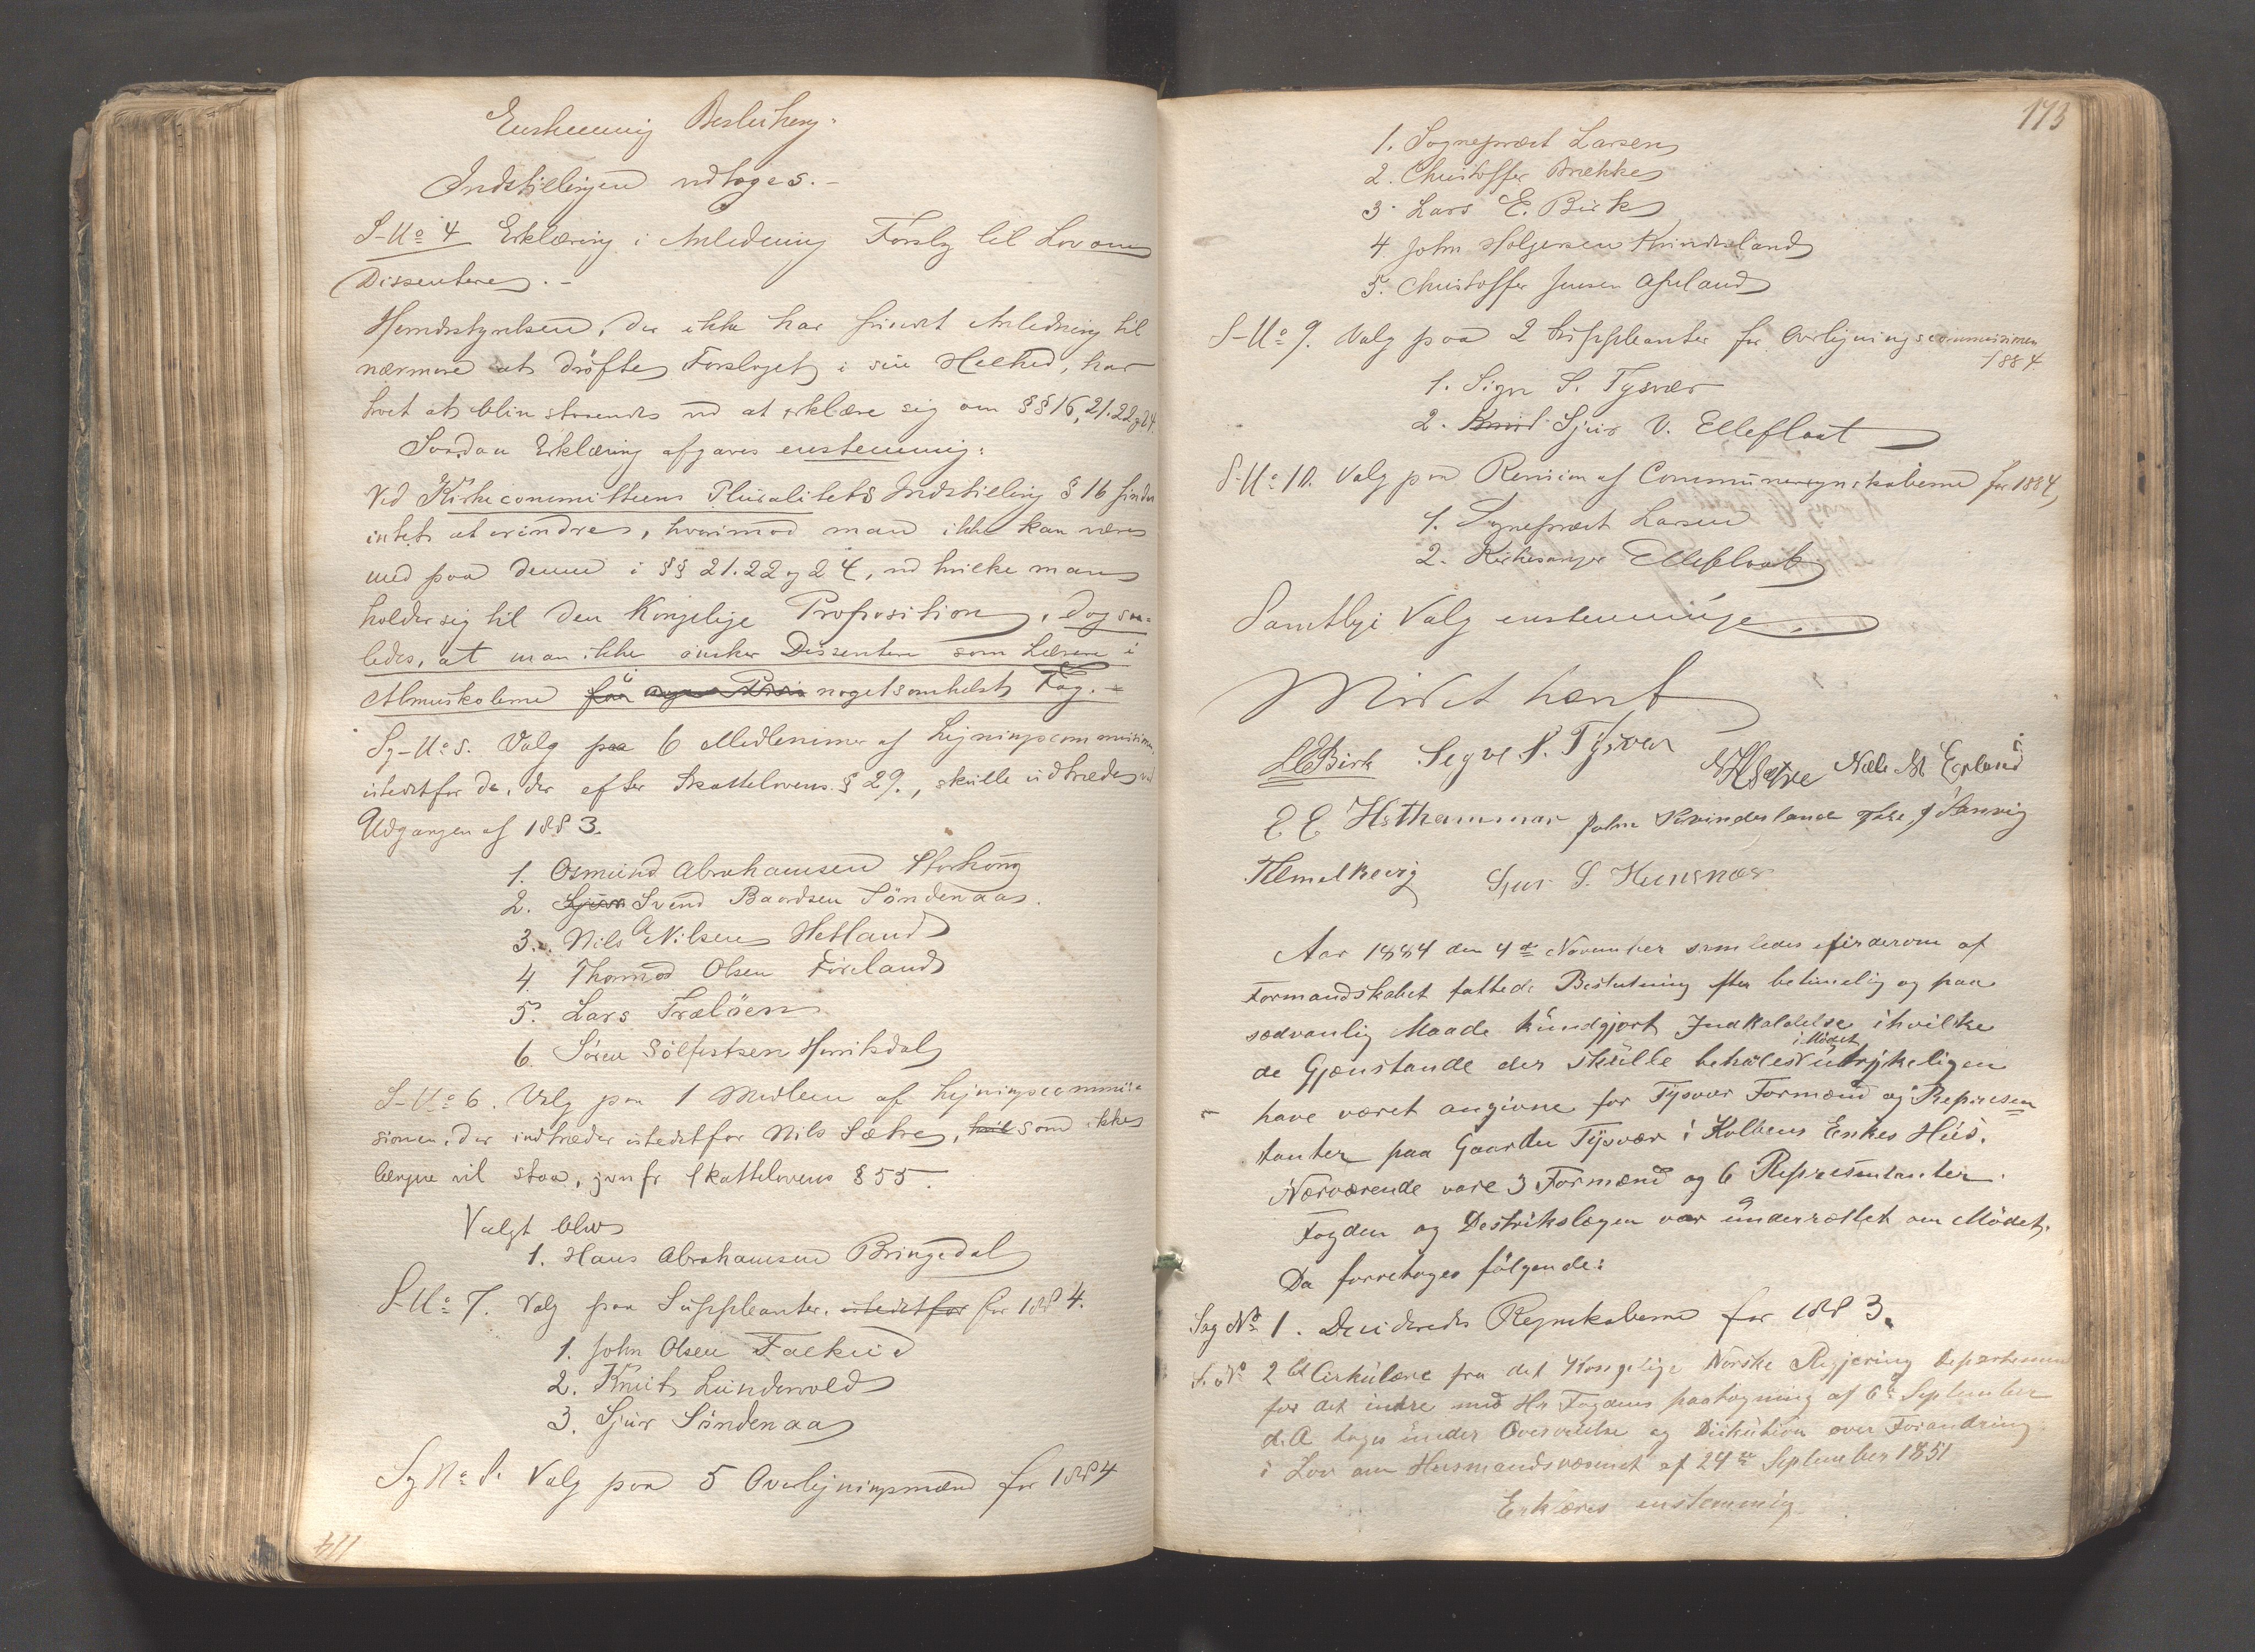 Enstemmig Beslutning:
Indstillingen vedtages.-
S-No 4 Erklæring i Anledning Forslag til Lov om
Dissentere.-
Herredsstyrelsen, der ikke har fundet Anledning til
nærmere at dröfte Forslaget i sin Helhed, har
troet at blive staaende ved at erklære sig om §§ 16, 21. 22 og 24.
Saadan Erklæring afgaves enstemmig:
Ved Kirkecommitteens Pluralitets Indstilling § 16 finder
intet at erindres, hvorimod man ikke kan være
med paa denne i §§ 21. 22 og 24, ved hvilke man
holder sig til den Kongelige Proposition, dog saa-
ledes, at man ikke önsker Dissentere som Lærere i
Almueskolerne i nogetsomhelst Fag.-
Sg-No 5. Valg paa 6 Medlemmer af Ligningscommissionen
istedetfor de, der efter Skattelovens § 29, skulle udtræde ved
Udgangen af 1883.
1. Osmund Abrahamsen Storhoug
2. Svend Baardsen Söndenaas.
3. Nils A Nilsen Hetland
4. Thormod Olsen Föreland
5. Lars Træløen
6. Sören Sölfestsen Hinriksdal
S-No 6. Valg paa 1 Medlem af Ligningscommis-
sionen, der indtræder istedetfor Nils Sætre, som ikke
længere vil staa, jvnfr Skattelovens § 55.
Valgt blev
1. Hans Abrahamsen Bringedal
S-No 7. Valg paa Suppleanter istedetfor for 1884.
1. John Olsen Falkeid
2. Knut Lundervold
3. Sjur Söndenaa
Sg No 8. Valg paa 5 Overligningsmænd for 1884
114
173
1. Sogneprest Larsen
2. Christoffer Brække
3. Lars E. Birk
4. John Holgersen Kvindesland
5. Christoffer Jensen Apeland
S-No 9. Valg paa 2 Suppleanter for Overligningscommissionen
1884
1. Sigve S. Tysvær
2. Knud Sjur V. Elleflaat
S-No 10. Valg paa Revision af Communeregnskaberne for 1884,
1. Sogneprest Larsen
2. Kirkesanger Elleflaat
Samtlige Valg enstemmige.
Mödet hævet
LEBirk Segve S. Tysver NHSætre Nils M Epland
E E Hethammar John Kvindesland J Sanvig
Sjur S. Hunsnæs
Aar 1884 den 4de November samledes efter derom af
Formandskabet fattede Beslutning efter betimelig og paa
sædvanlig Maade kundgjort Indkaldelse ihvilke
de Gjenstande der skulle behøles i Mödet udtrykeligen
have været angivne for Tysvær Formænd og Represen
tanter paa Gaarden Tysvær i Kolbens Enkes Hus.
Nærværende vare 3 Formænd og 6 Representanter.
Fogden og Destrikslægen var underrettet om Mödet.
Da forretoges fölgende:
Sag No 1. Decideredes Regnskaberne for 1883.
S. No 2 Et Cirkulære fra det Kongelige Norske Regjering Departemen
for det indre med Hr Fogdens paategning af 6te September
d.A. toges under Overveielse og Diskution over Forandring
i Lov om Husmandsvæsenet af 24de September 1851
Erklæres enstemmig